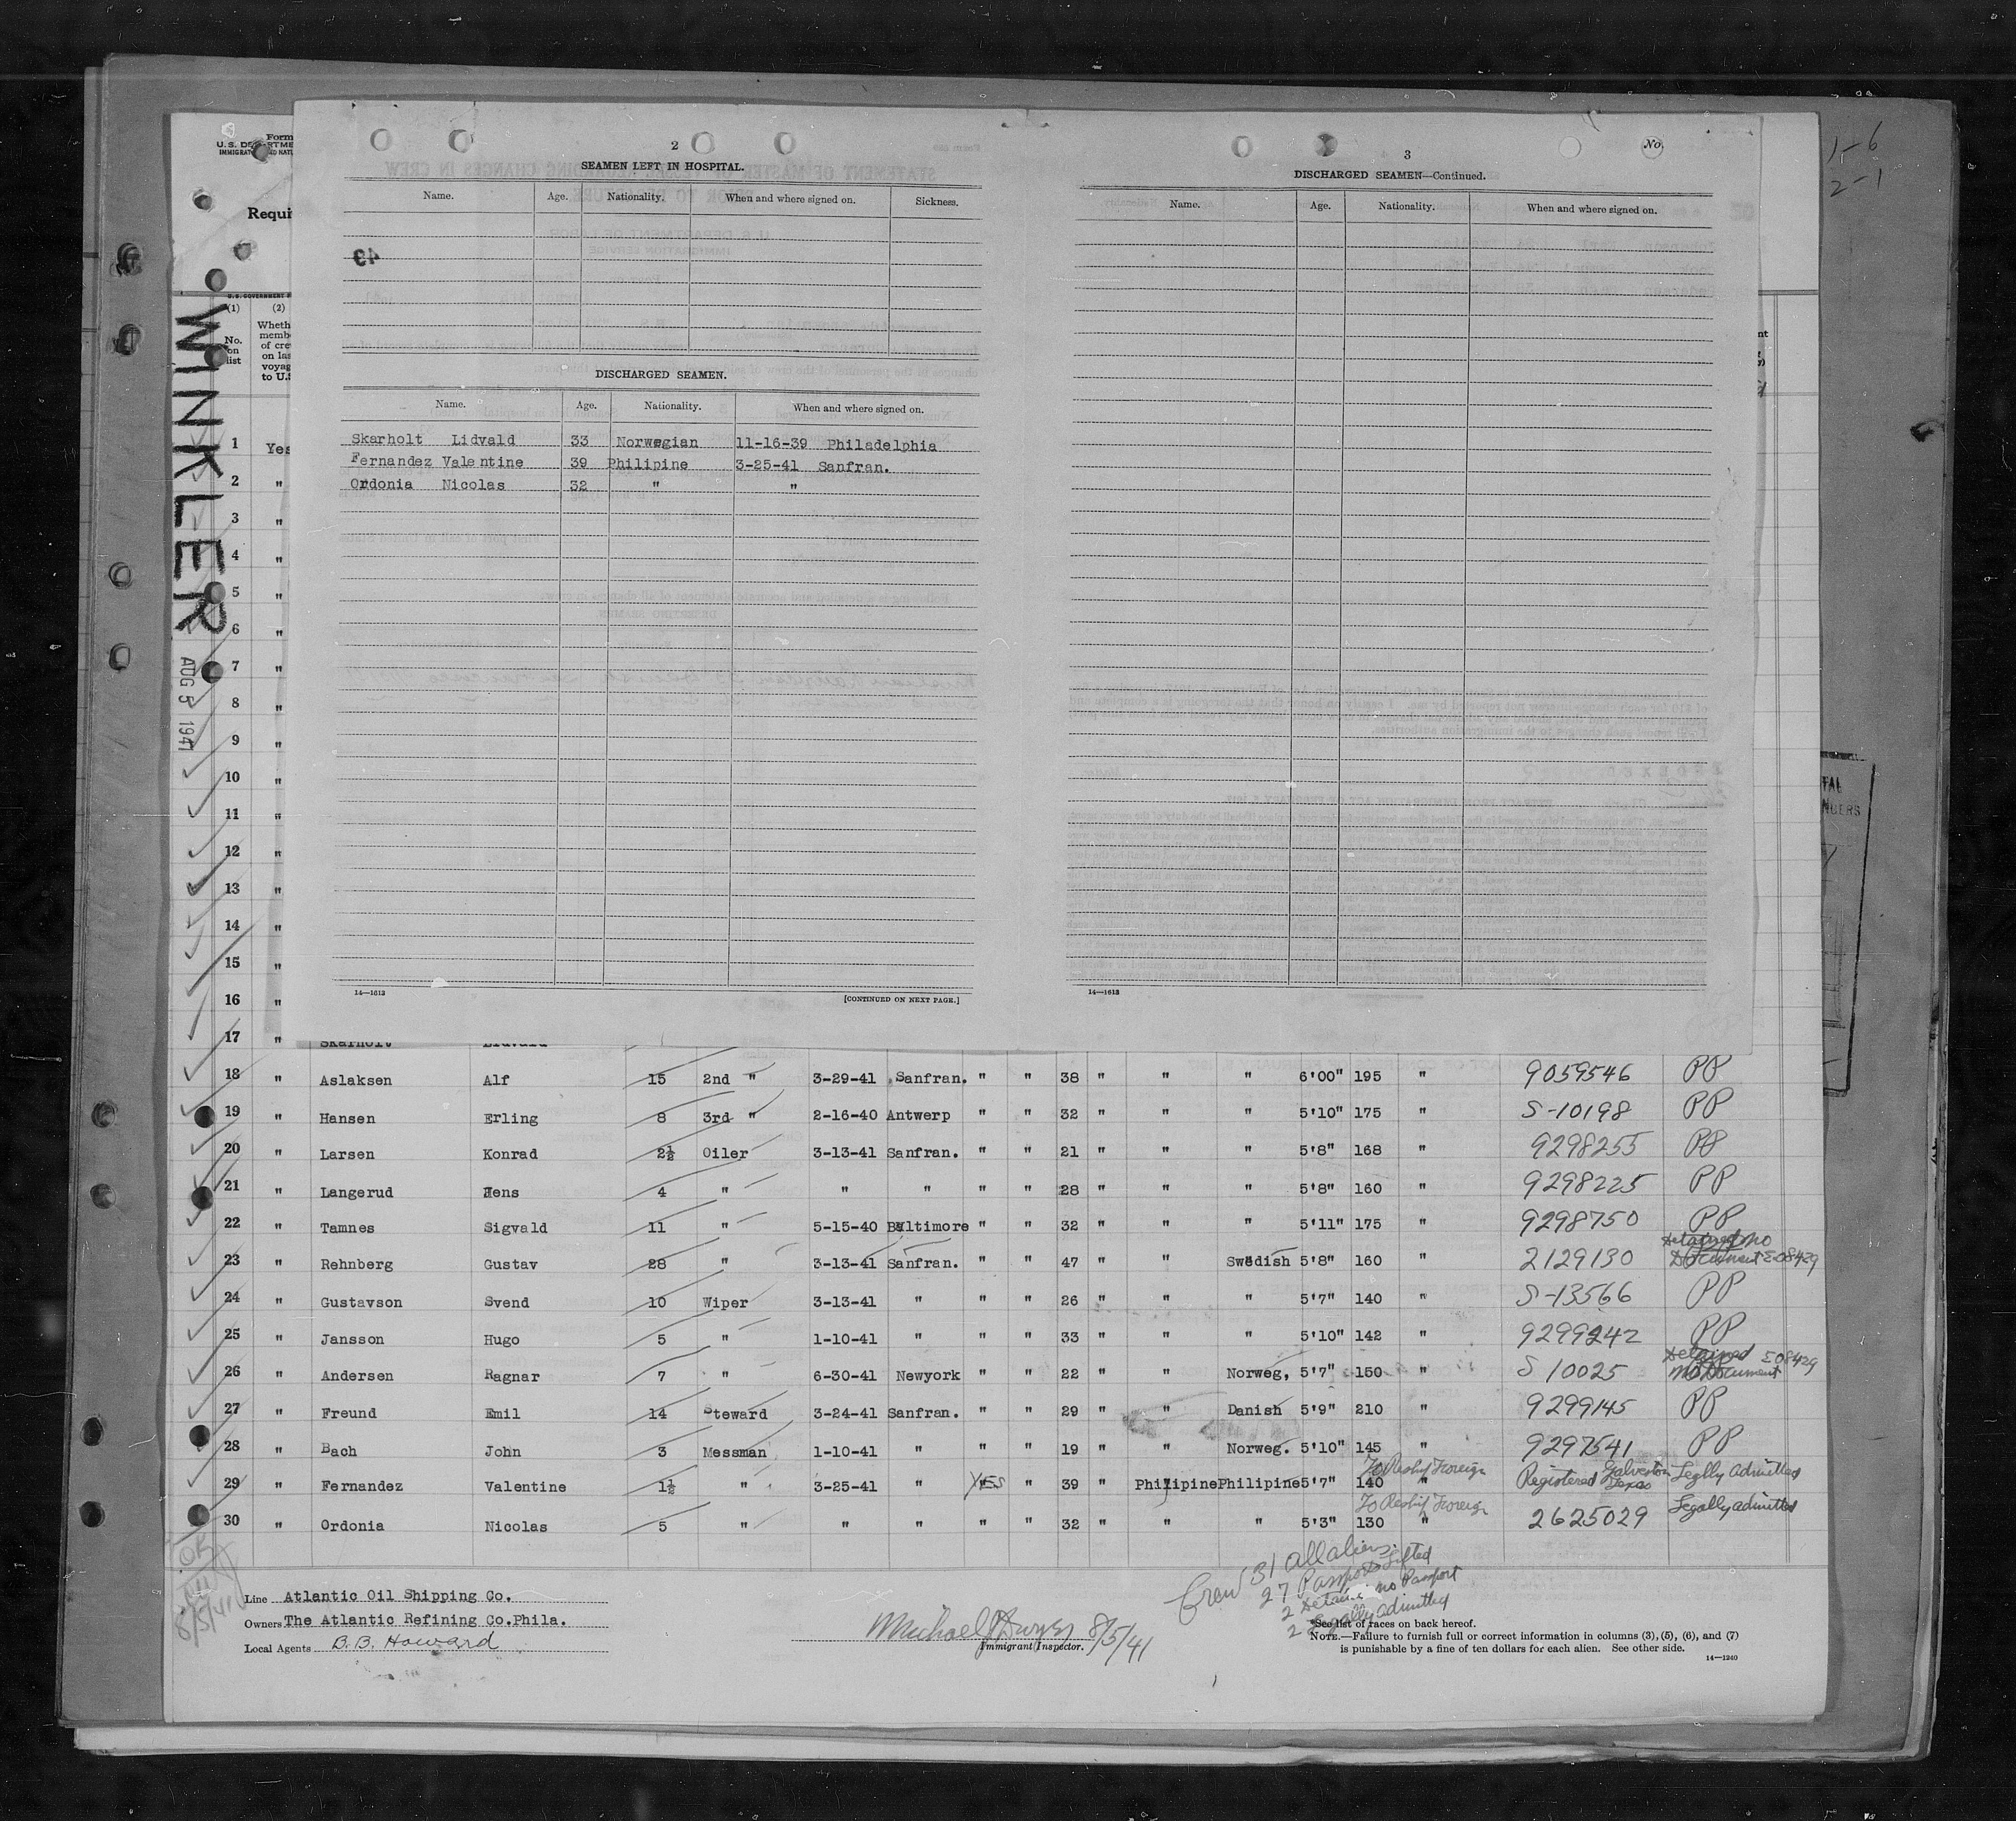 1-6
2-1
Form
U.S. DEPARTME
IMMIGRAT
Requi
U.S. GOVERNMENT P
(1) (2)
No. on list
Wheth
memb
of cre
on las
voyag
to U.S
WINKLER
AUG 5 1941
2
SEAMEN LEFT IN HOSPITAL.
Name. Age. Nationality. When and where signed on. Sickness.
DISCHARGED SEAMEN.
Name. Age. Nationality. When and where signed on.
Skarholt Lidvald 33 Norwegian 11-16-39 Philadelphia
Fernandez Valentine 39 Philipine 3-25-41 Sanfran.
Ordonia Nicolas 32 " "
14—1613 [CONTINUED ON NEXT PAGE.]
No.
3
DISCHARGED SEAMEN—Continued.
Name. Age. Nationality. When and where signed on.
14—1613
1 Yes
2 "
3 "
4 "
5 "
6 "
7 "
8 "
9 "
10 "
11 "
12 "
13 "
14 "
15 "
16 "
17 " Skarholt Lidvald
18 " Aslaksen Alf 15 2nd " 3-29-41 Sanfran. " " 38 " " " 6'00" 195 " 9059546 PP
19 " Hansen Erling 8 3rd " 2-16-40 Antwerp " " 32 " " " 5'10" 175 " S-10198 PP
20 " Larsen Konrad 2½ Oiler 3-13-41 Sanfran. " " 21 " " " 5'8" 168 " 9298255 PP
21 " Langerud Jens 4 " " " " " 28 " " " 5'8" 160 " 9298225 PP
22 " Tamnes Sigvald 11 " 5-15-40 Baltimore " " 32 " " " 5'11" 175 " 9298750 PP
23 " Rehnberg Gustav 28 " 3-13-41 Sanfran. " " 47 " " Swedish 5'8" 160 " 2129130 Detained no Document E08429
24 " Gustavson Svend 10 Wiper 3-13-41 " " " 26 " " " 5'7" 140 " S-13566 PP
25 " Jansson Hugo 5 " 1-10-41 " " " 33 " " " 5'10" 142 " 9299242 PP
26 " Andersen Ragnar 7 " 6-30-41 Newyork " " 22 " " Norweg, 5'7" 150 " S 10025 Detained no Document E08429
27 " Freund Emil 14 Steward 3-24-41 Sanfran. " " 29 " " Danish 5'9" 210 " 9299145 PP
28 " Bach John 3 Messman 1-10-41 " " " 19 " " Norweg. 5'10" 145 " 9297541 PP
29 " Fernandez Valentine 1½ " 3-25-41 " YES " 39 " Philipine Philipine 5'7" 140 " To Reship Foreign Registered Galveston Texas Legally Admitted
30 " Ordonia Nicolas 5 " " " " " 32 " " " 5'3" 130 " To Reship Foreign 2625029 Legally admitted
OK
8/5/41
Line Atlantic Oil Shipping Co.
Owners The Atlantic Refining Co.Phila.
Local Agents B.B. Howard
Michael 8/5/41
Immigrant Inspector.
Crew 31 all aliens.
27 Passports Lifted
2 Detained no Passport
2 Legally admitted
*See list of races on back hereof.
NOTE.—Failure to furnish full or correct information in columns (3), (5), (6), and (7)
is punishable by a fine of ten dollars for each alien. See other side.
14—1240